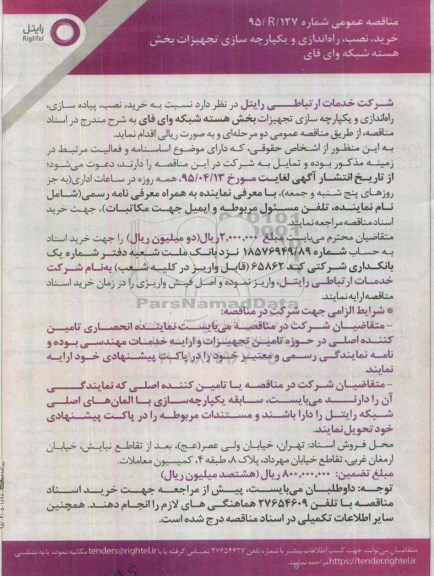 مناقصه عمومی شماره ۹۵/R/۱۲۷
خرید، نصب، راه‌اندازی و یکپارچه سازی تجهیزات بخش
هسته شبکه وای فای
رایتل
RighTel
شرکت خدمات ارتباطی رایتل در نظر دارد نسبت به خرید، نصب، پیاده سازی،
راه‌اندازی و یکپارچه سازی تجهیزات بخش هسته شبکه وای فای به شرح مندرج در اسناد
مناقصه، از طریق مناقصه عمومی دو مرحله‌ای و به صورت ریالی اقدام نماید.
به این منظور از اشخاص حقوقی، که دارای موضوع اساسنامه و فعالیت مرتبط در
زمینه مذکور بوده و تمایل به شرکت در این مناقصه را دارند، دعوت می‌شود؛
از تاریخ انتشار آگهی لغایت مورخ ۹۵/۰۴/۱۳، همه روزه در ساعات اداری(به جز
روزهای پنج شنبه و جمعه)، با معرفی نماینده به همراه معرفی نامه رسمی(شامل
نام نماینده، تلفن مسئول مربوطه و ایمیل جهت مکاتبات)، جهت خرید
اسناد مناقصه مراجعه نمایند.
متقاضیان محترم می‌بایست مبلغ ۲,۰۰۰,۰۰۰ریال(دو میلیون ریال) را جهت خرید اسناد
به حساب شماره ۱۸۵۷۶۹۴۹/۸۹ نزد بانک ملت شعبه دفتر شماره یک
بانکداری شرکتی کد ۶۵۸۶۲ (قابل واریز در کلیه شعب) به‌نام شرکت
خدمات ارتباطی رایتل، واریز نموده و اصل فیش واریزی را در زمان خرید اسناد
مناقصه ارایه نمایند.
ParsNamadData
* شرایط الزامی جهت شرکت در مناقصه:
- متقاضیان شرکت در مناقصه می‌بایست نماینده انحصاری تامین
کننده اصلی در حوزه تامین تجهیزات و ارایه خدمات مهندسی بوده و
نامه نمایندگی رسمی و معتبر خود را در پاکت پیشنهادی خود ارایه
نمایند.
- متقاضیان شرکت در مناقصه یا تامین کننده اصلی که نمایندگی
آن را دارند می‌بایست، سابقه یکپارچه‌سازی با المان‌های اصلی
شبکه رایتل را دارا باشند و مستندات مربوطه را در پاکت پیشنهادی
خود تحویل نمایند.
محل فروش اسناد: تهران، خیابان ولی عصر(عج)، بعد از تقاطع نیایش، خیابان
ارمغان غربی، تقاطع خیابان مهرداد، پلاک ۸، طبقه ۴، کمیسیون معاملات.
مبلغ تضمین: ۸۰۰,۰۰۰,۰۰۰ ریال (هشتصد میلیون ریال)
توجه: داوطلبان می‌بایست، پیش از مراجعه جهت خرید اسناد
مناقصه با تلفن ۲۷۶۵۴۶۰۹ هماهنگی های لازم را انجام دهند. همچنین
سایر اطلاعات تکمیلی در اسناد مناقصه درج شده است.
متقاضیان می‌توانند جهت کسب اطلاعات بیشتر با شماره تلفن ۲۷۶۵۴۶۲۷ تماس گرفته یا با tenders@rightel.ir مکاتبه نموده یا به نشانی
https://tenders.rightel.ir مراجعه نمایند.